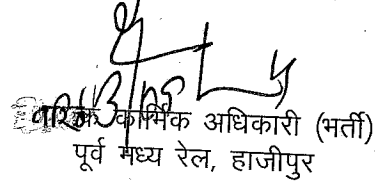 वरिष्ठ कार्मिक अधिकारी (भर्ती)
पूर्व मध्य रेल, हाजीपुर